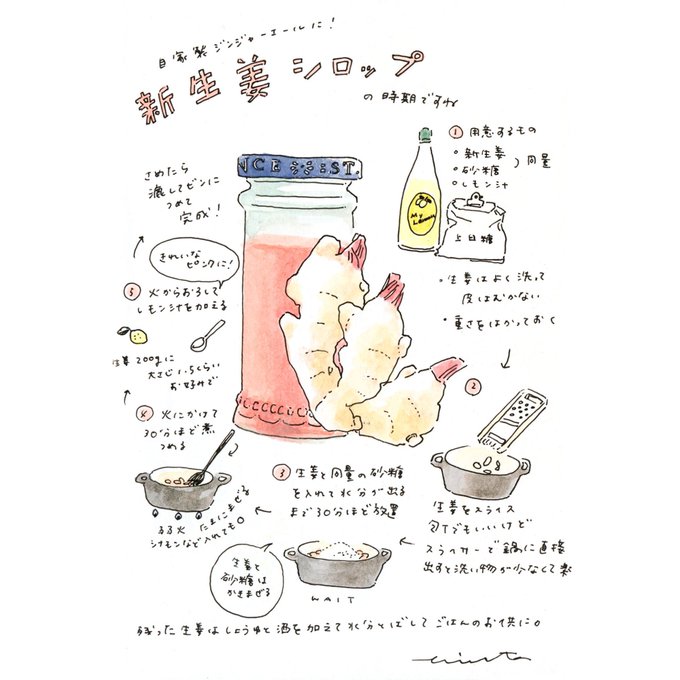 自家製ジンジャーエールに!
新生姜シロップ
の時期ですね
① 用意するもの
・新生姜
・砂糖
・レモン汁
同量
My Lemon
上白糖
・生姜はよく洗って
皮はむかない
・重さをはかっておく
②
生姜をスライス
包丁でもいいけど
スライサーで鍋に直接
出すと洗い物が少なくて楽
③ 生姜と同量の砂糖
を入れて水分が出る
まで30分ほど放置
生姜と
砂糖は
かきまぜる
WAIT
④ 火にかけて
30分ほど煮
つめる
弱火 たまにまぜる
シナモンなど入れても◎
⑤ 火からおろして
レモン汁を加える
きれいな
ピンクに!
生姜200gに
大さじ1.5くらい
お好みで
さめたら
漉してビンに
つめて
完成!
NCE ST.
残った生姜はしょうゆと酒を加えて水分とばしてごはんのお供に。